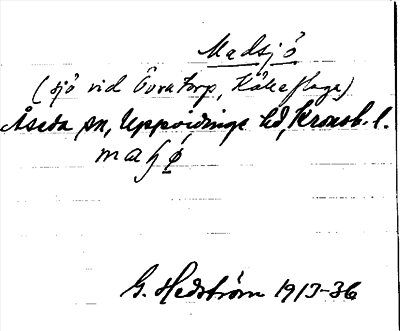 Madsjö
(sjö vid Övratorp, Kåkeflage)
Åseda sn, Uppvidinge hd, Kronob. l.
maʃø
G. Hedström 1917-36